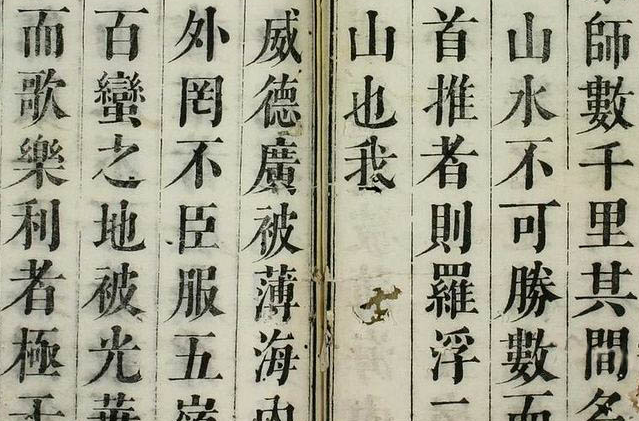 師數千里其間名
山水不可勝數而
首推者則羅浮一
山也我
威德廣被薄海內
外罔不臣服五嶺
百蠻之地被光華
而歌樂利者極于